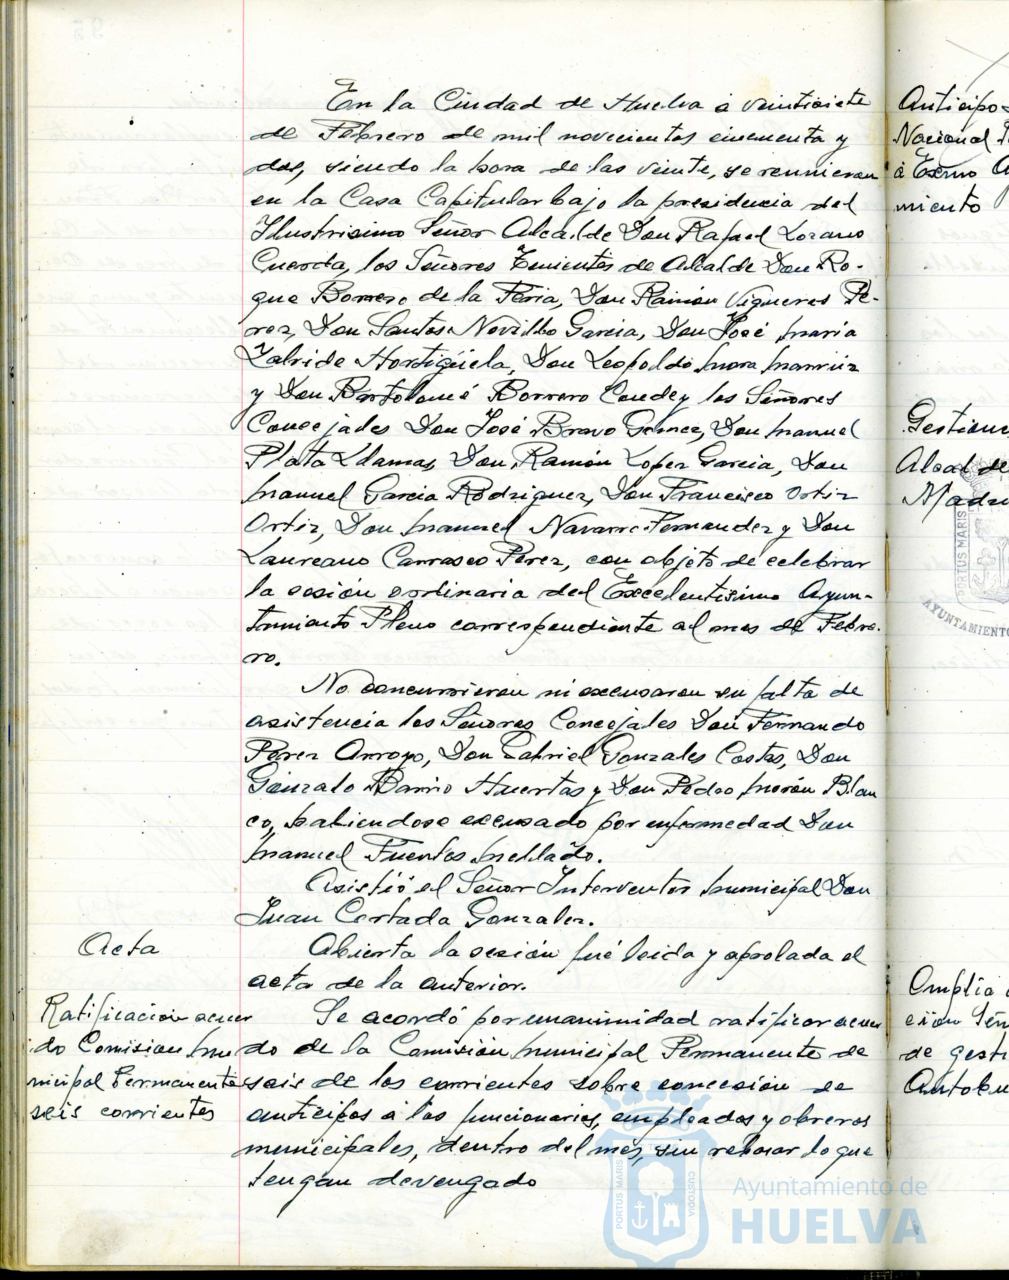 En la Ciudad de Huelva á veintisiete
de Febrero de mil novecientos cincuenta y
dos, siendo la hora de las veinte, se reunieron
en la Casa Capitular bajo la presidencia del
Ilustrisimo Señor Alcalde Don Rafael Lozano
Cuerda, los Señores Tenientes de Alcalde Don Ro-
que Borrero de la Feria, Don Ramón Vigueras Pe-
rez, Don Santos Novillo Garcia, Don José Maria
Hortigüela, Don Leopoldo Mora
y Don Bartolomé Borrero Conde y los Señores
Concejales Don José Bravo Gomez, Don Manuel
Plata Llamas, Don Ramón Lopez Garcia, Don
Manuel Garcia Rodriguez, Don Francisco Ortiz
Ortiz, Don Manuel Navarro Fernandez y Don
Laureano Carrasco Perez, con objeto de celebrar
la sesión ordinaria del Excelentisimo Ayun-
tamiento Pleno correspondiente al mes de Febre-
ro.
No concurrieron ni excusaron su falta de
asistencia los Señores Concejales Don Fernando
Perez Arroyo, Don Gabriel Gonzales Costas, Don
Gonzalo Barrio Huertas y Don Pedro Morón Blan
co, habiendose excusado por enfermedad Don
Manuel Fuentes Mellado.
Asistió el Señor Interventor Municipal Don
Juan Certada Gonzalez.
Acta
Abierta la sesión fué leida y aprobada el
acta de la anterior.
Ratificacion acuer
do Comision Mu
nicipal Permanente
seis corrientes
Se acordó por unanimidad ratificar acuer
do de la Comisión Municipal Permanente de
seis de los corrientes sobre concesión de
anticipos á los funcionarios, empleados y obreros
municipales, dentro del mes, sin rebasar lo que
tengan devengado
Anticipo
Nacional
á Excmo
miento
Gestione
Alcalde
Madri
PORTUS MARIS
AYUNTAMIENTO
Amplia
cion Señ
de gesti
Autobu
PORTUS MARIS
CUSTODIA
Ayuntamiento de
HUELVA